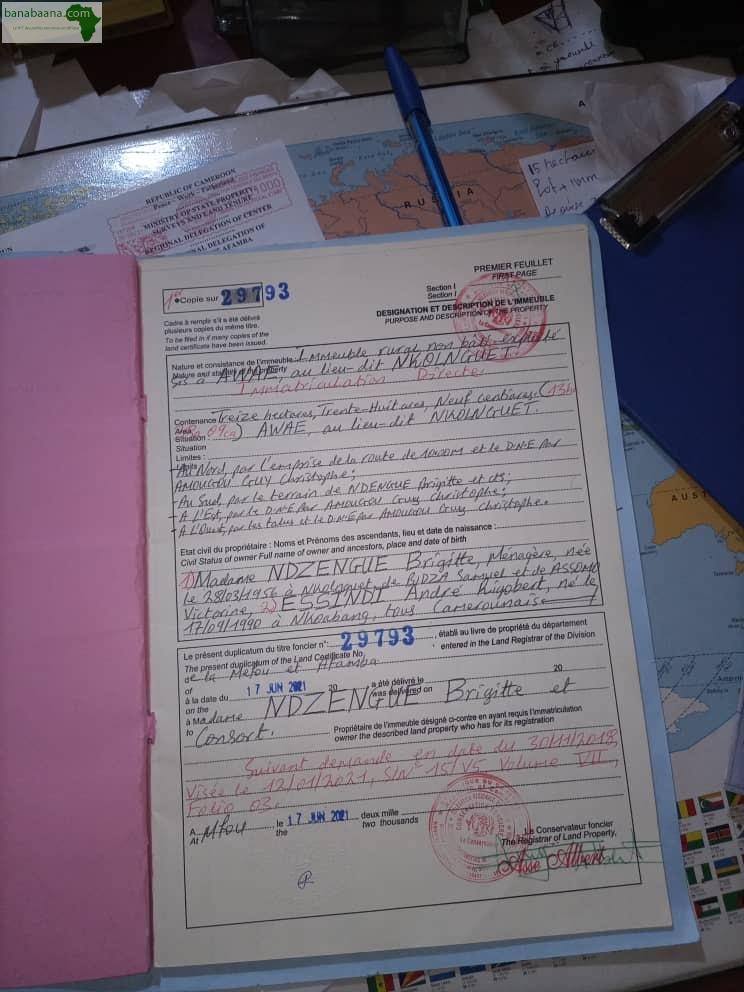 banabaana.com
REPUBLIC OF CAMEROON
Peace - Work - Fatherland
MINISTRY OF STATE PROPERTY
SURVEYS AND LAND TENURE
REGIONAL DELEGATION OF CENTER
RUSSIA
15 hectares
PREMIER FEUILLET
FIRST PAGE
Section I
Section I
DESIGNATION ET DESCRIPTION DE L'IMMEUBLE
PURPOSE AND DESCRIPTION OF THE PROPERTY
Copie sur 29793
Cadre à remplir s'il a été délivré
plusieurs copies du même titre.
To be filled in if many copies of the
land certificate have been issued.
Nature et consistance de l'immeuble Immeuble rural non bâti exploité
sis à AWAE, au lieu-dit NKOLNGUET.
Immatriculation Directe
Contenance Treize hectares, Trente-Huit ares, Neuf centiares (13ha
Area 09ca) AWAE, au lieu-dit NKOLNGUET.
Situation
Situation
Limites :
-Au Nord, par l'emprise de la route de et le D.N.E par
AMOUGOU Guy Christophe;
-Au Sud, par le terrain de NDENGUE Brigitte et cts;
-A l'Est, par le D.N.E par AMOUGOU Guy Christophe;
-A l'Ouest, par les talus et le D.N.E par AMOUGOU Guy Christophe.
Etat civil du propriétaire : Noms et Prénoms des ascendants, lieu et date de naissance :
Civil Status of owner Full name of owner and ancestors, place and date of birth
1) Madame NDZENGUE Brigitte, Menagère, née
le 28/03/1956 à Nkolnguet de BIDZA Samuel et de ASSOMO
Victorine, 2) ESSINDI André Rigobert, né le
17/09/1990 à Nkoabang, tous Camerounais
Le présent duplicatum du titre foncier n° 29793, établi au livre de propriété du département
The present duplicatum of the Land Certificate No, entered in the Land Registrar of the Division
de la Mefou et Afamba
of
à la date du 17 JUN 2021 20 a été délivré le 20
on the was delivered on
à Madame NDZENGUE Brigitte et
to Consort. Propriétaire de l'immeuble désigné ci-contre en ayant requis l'immatriculation
owner the described land property who has for its registration
Suivant demande en date du 30/11/2018,
Visée le 12/01/2021, S/N° 15/Y5 Volume VII,
Folio 03.
A Mfou le 17 JUN 2021 deux mille
At the two thousands
Le Conservateur foncier
The Registrar of Land Property,
Asse Albert